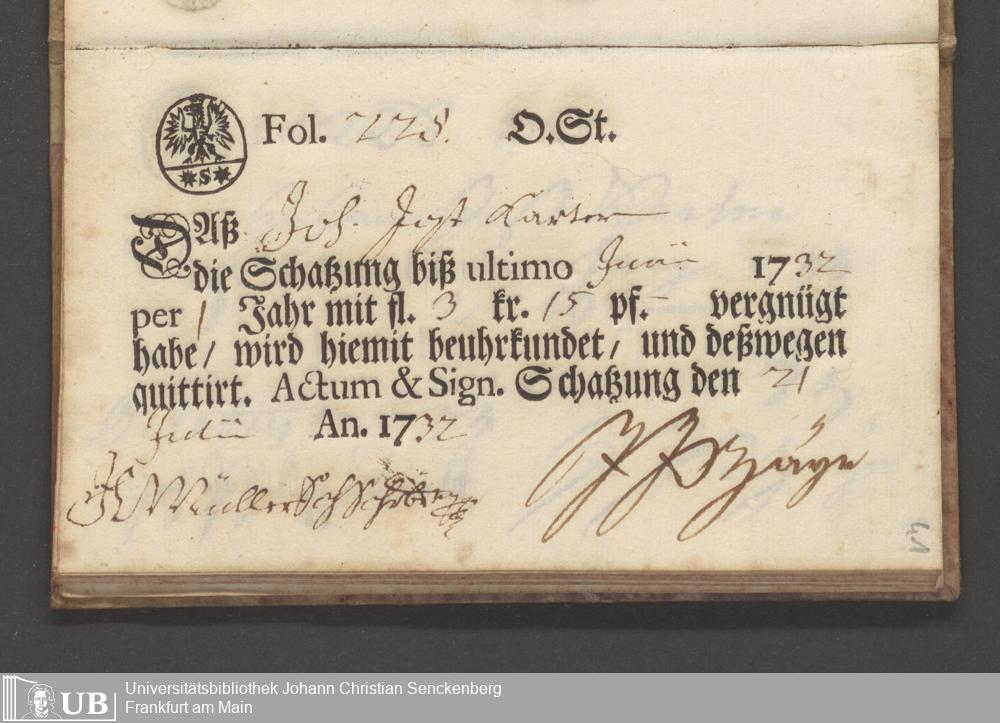 Fol. 228. O.St.
*S*
DAß Joh. Jost Karter
die Schatzung biß ultimo Junii 1732
per 1 Jahr mit fl. 3 kr. 15 pf. – vergnügt
habe/ wird hiemit beuhrkundet/ und deßwegen
quittirt. Actum & Sign. Schatzung den 21
Julii An. 1732
Müller
31
UB
Universitätsbibliothek Johann Christian Senckenberg
Frankfurt am Main